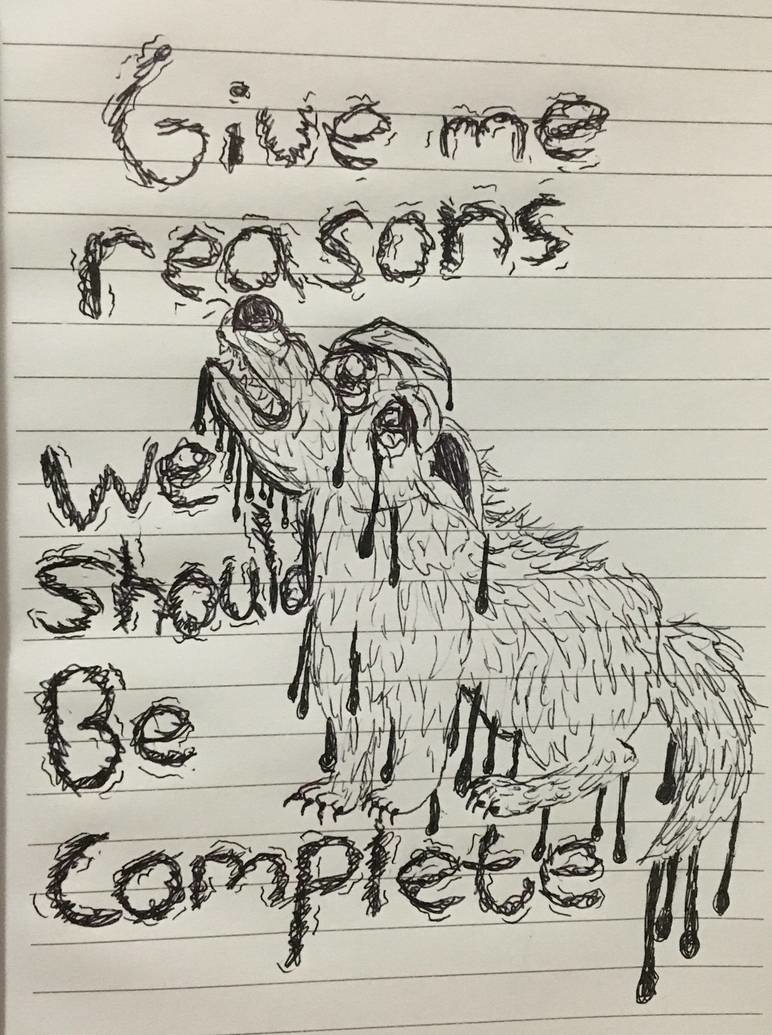 Give me
reasons
We
should
Be
Complete